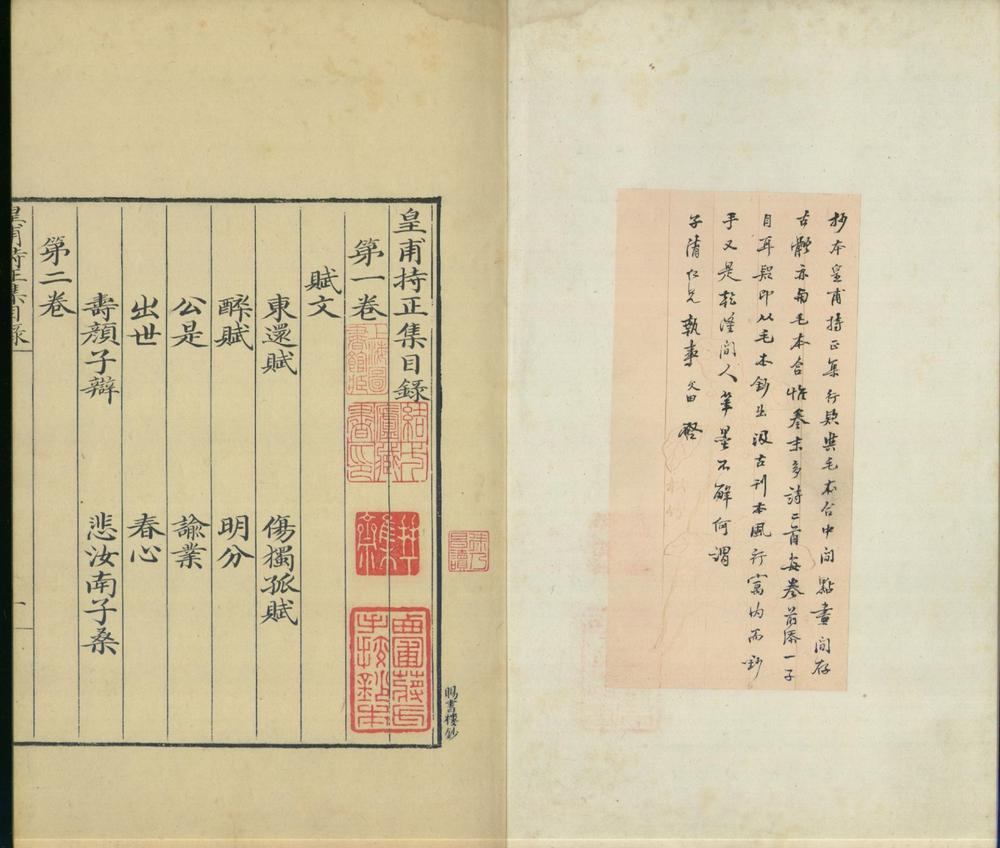 抄本皇甫持正集行款與毛本合中間點畫間存
古體亦與毛本合惟卷末多詩二首每卷首添一子
目耳殆即从毛本鈔出汲古刊本風行宇內而鈔
手又是乾隆間人筆墨不解何謂
子清仁兄執事
皇甫持正集目錄
第一卷
賦文
東還賦 傷獨孤賦
醉賦 明分
公是 諭業
出世 春心
壽顏子辯 悲汝南子桑
第二卷
皇甫持正集目錄
一
賜書樓鈔
上海圖書館藏
結一廬藏書印